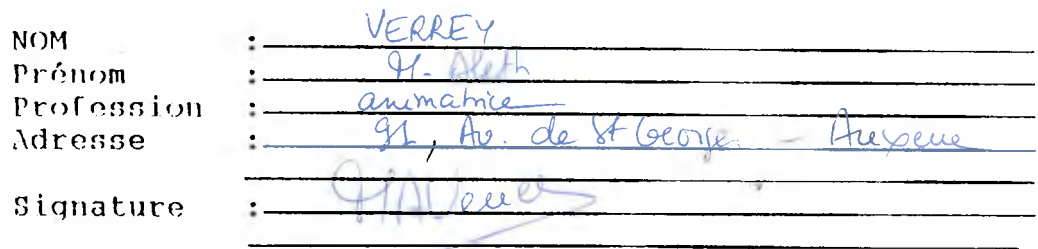 NOM : VERREY
Prénom : M. Aleth
Profession : animatrice
Adresse : 91, Av. de St George - Auxerre
Signature : MAVerrey